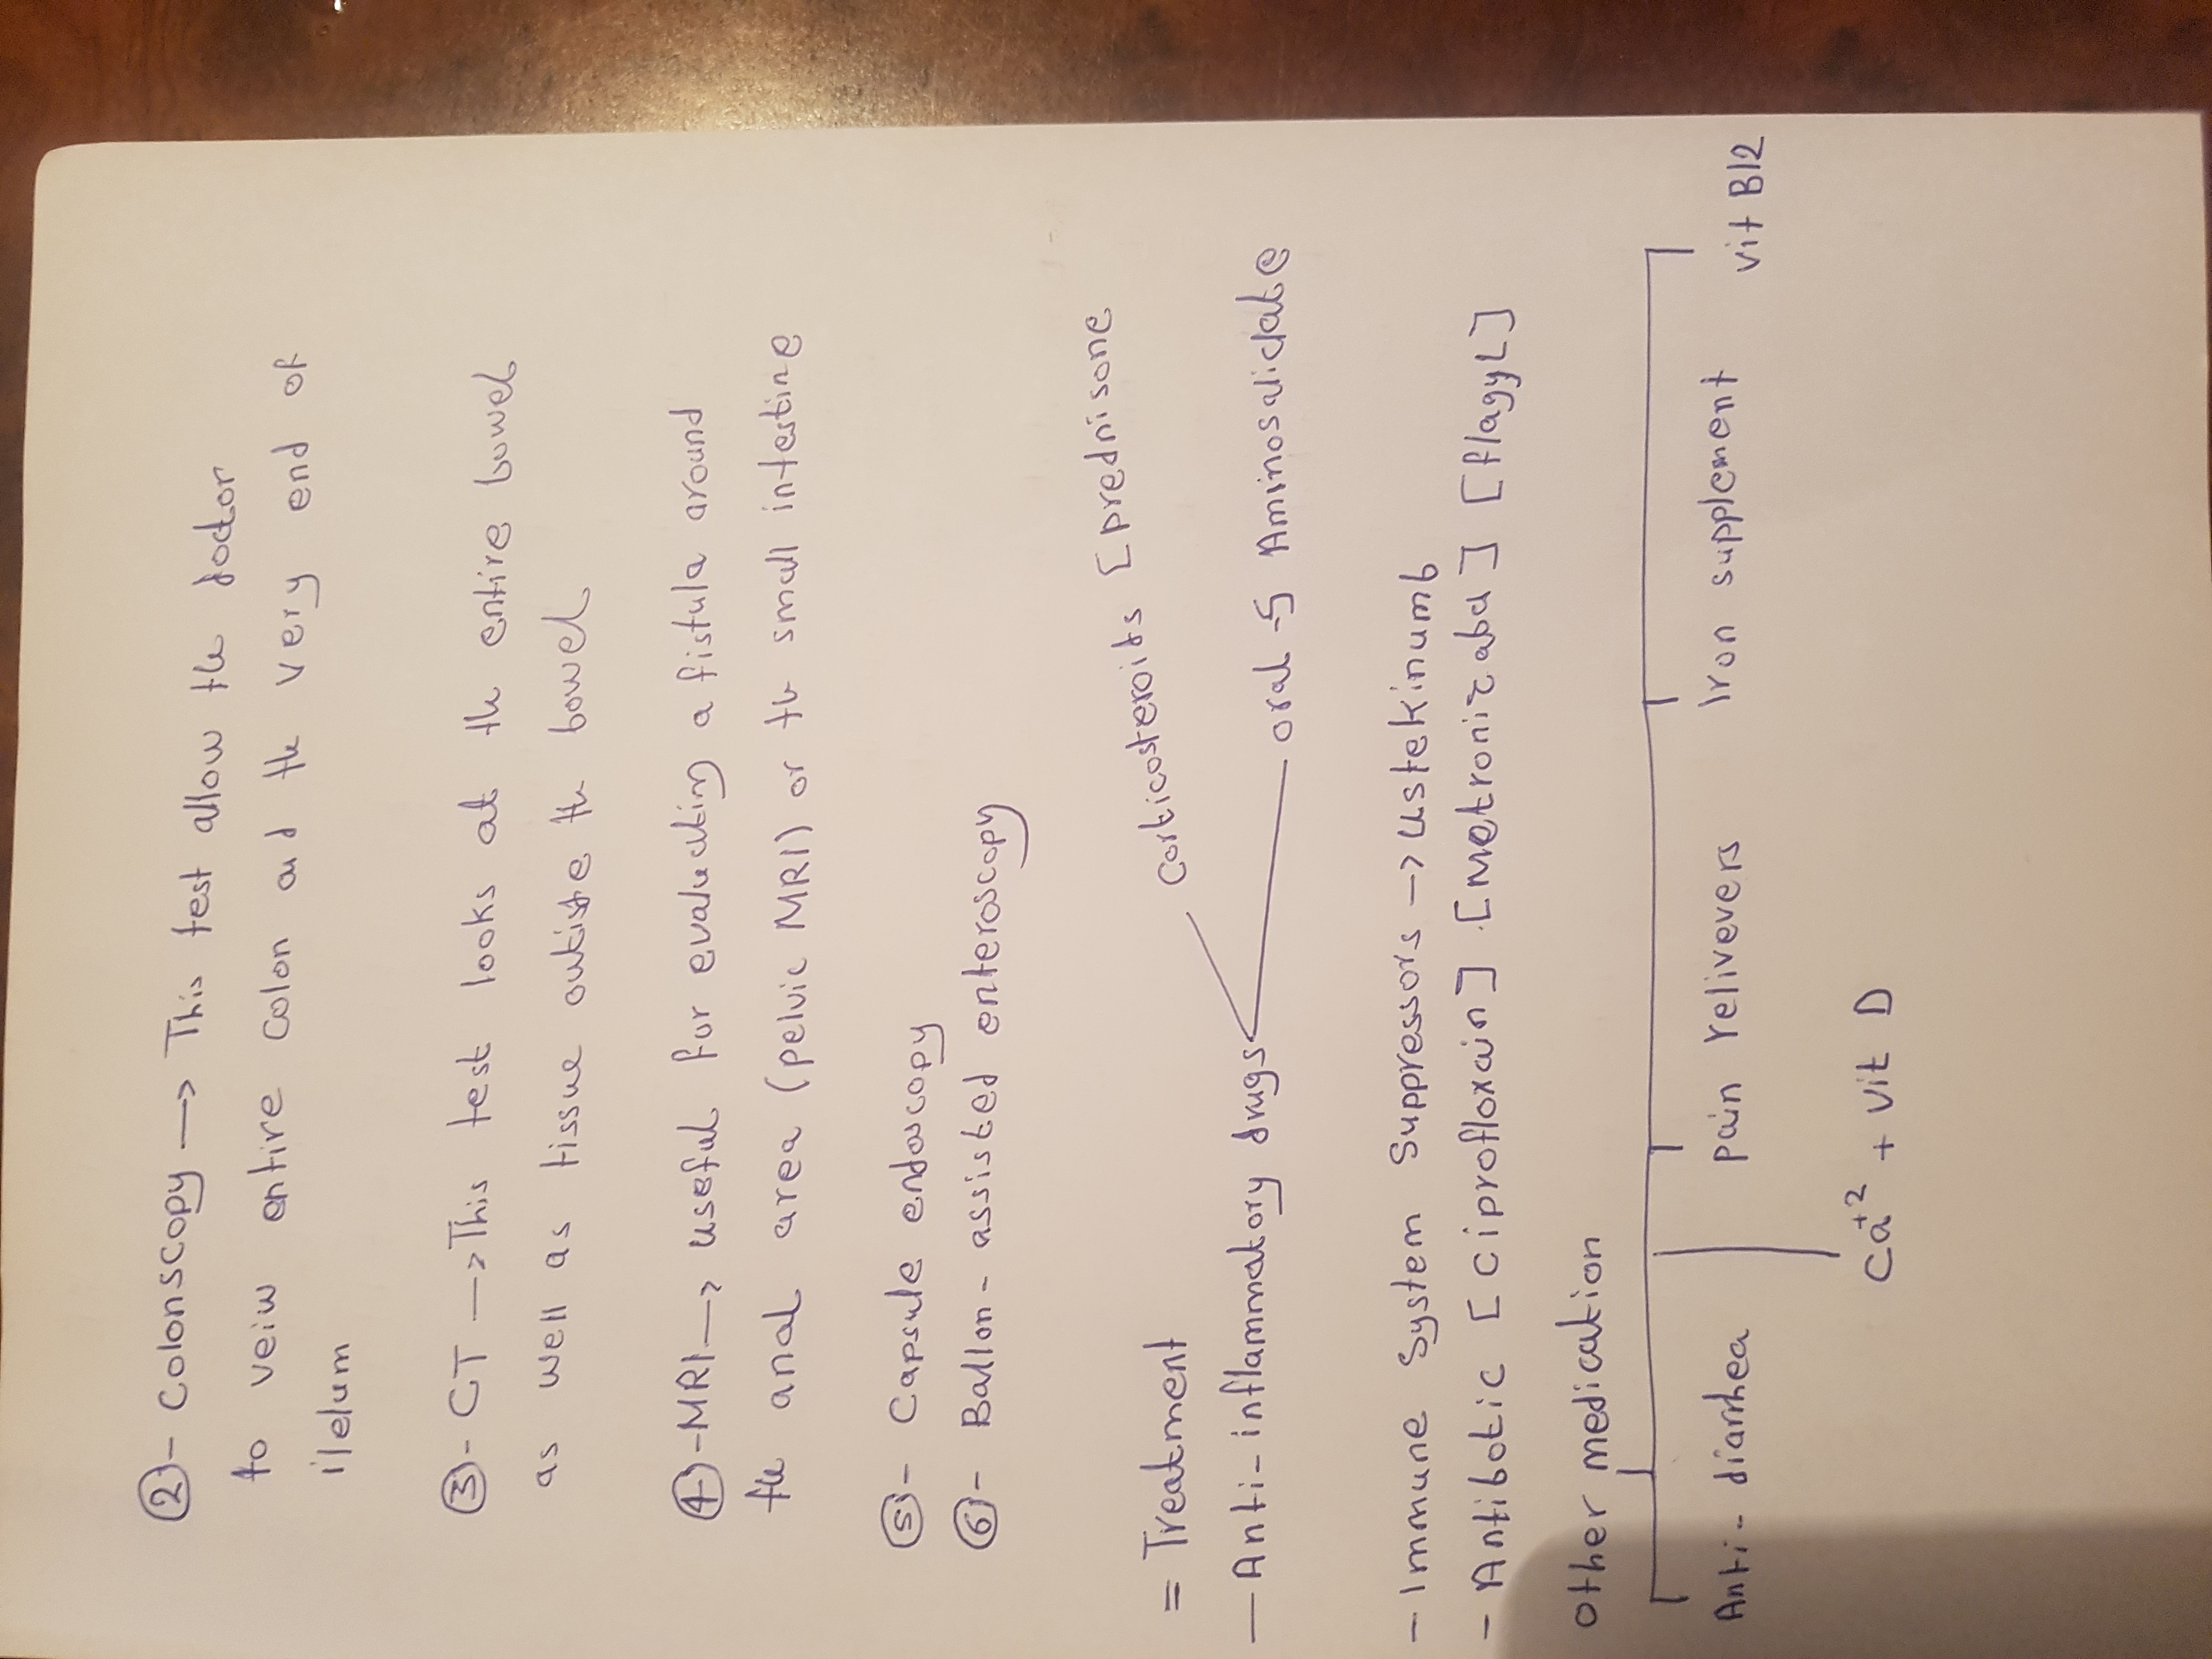 ②- Colonscopy → This test allow the doctor
to veiw entire colon and the very end of
ilelum
③- CT → This test looks at the entire bowel
as well as tissue outiste the bowel
④-MRI → useful for evaluating a fistula around
the anal area (pelvic MRI) or the small intestine
⑤- Capsule endoscopy
⑥- Ballon-assisted enteroscopy
= Treatment
corticosteroids [prednisone
— Anti-inflammatory drugs
oral -5 Aminosalicate
- Immune System Suppressors → ustekinumb
- Antibotic [Ciprofloxain] [Metronizaba] [flagyL]
Other medication
Anti-diarrhea pain relivevers Iron supplement vit B12
Ca+2 + vit D